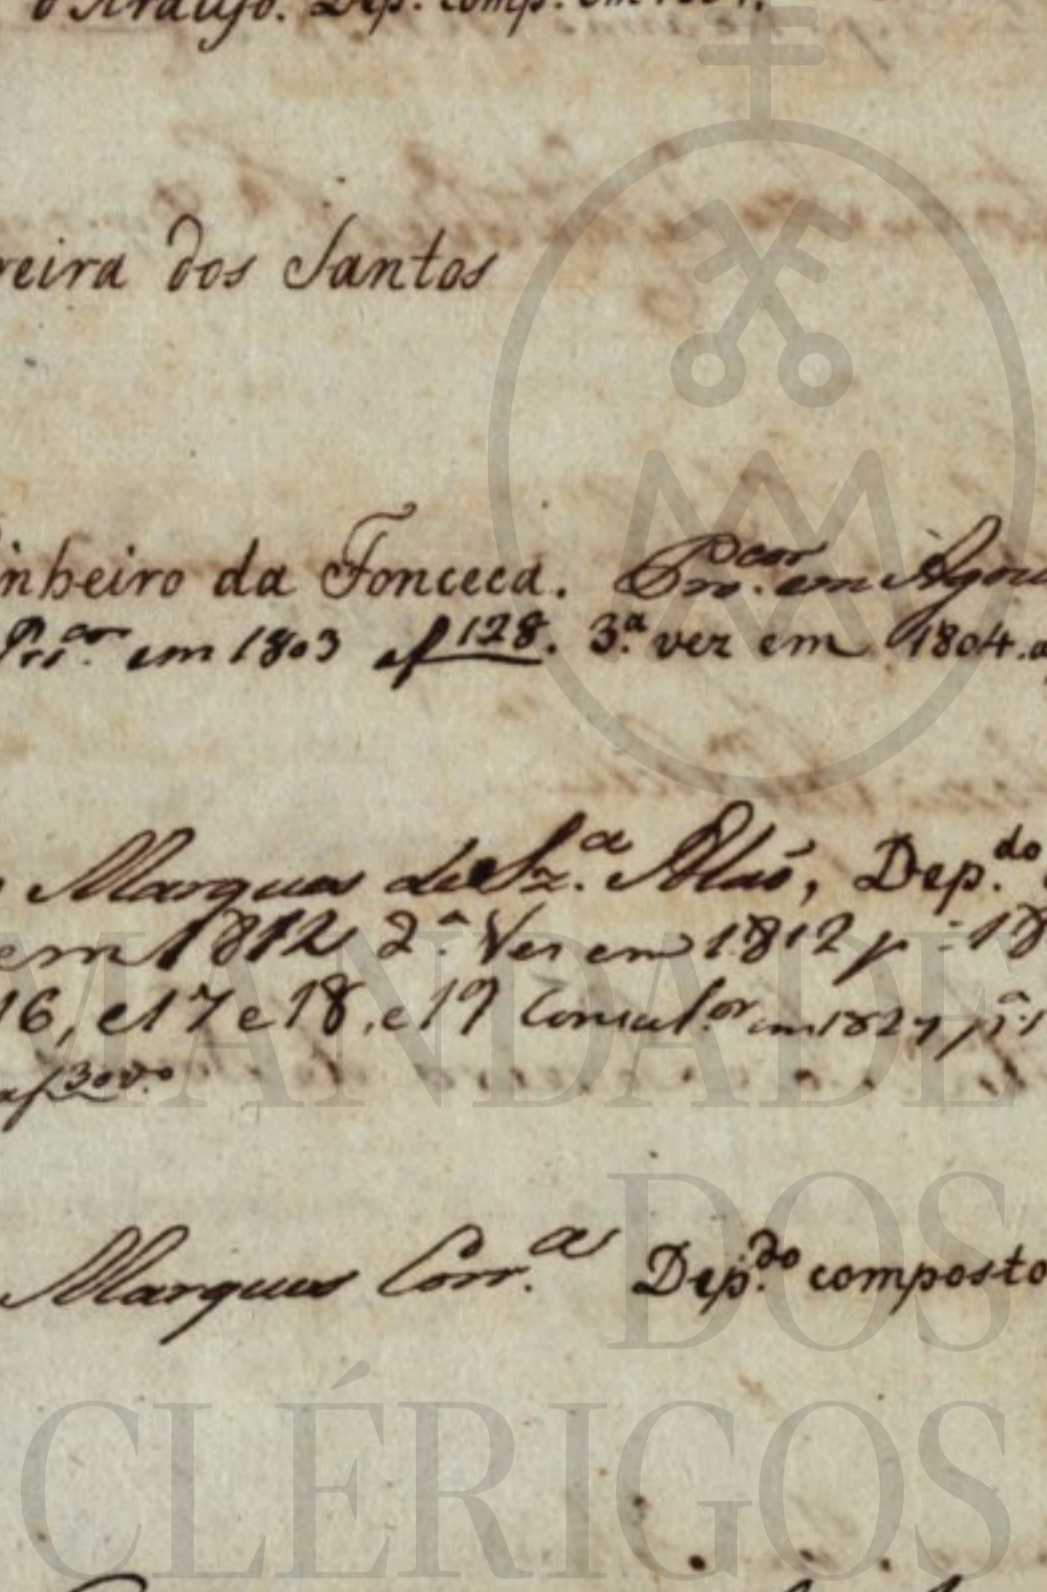 d'Araujo. Dep. comp. em
reira dos Santos
inheiro da Fonceca. Pro.cor em Agou
em 1803 af 128. 3.ª vez em 1804. a
Marques de Sz.ª Alão, Dep.do
em 1812 2.ª Ves em 1812 p
16, e 17 e 18, e 19 Consul.or em 1827
af 30v.º
Marques Corr.ª Dep.do composto
MANDADE
DOS
CLÉRIGOS